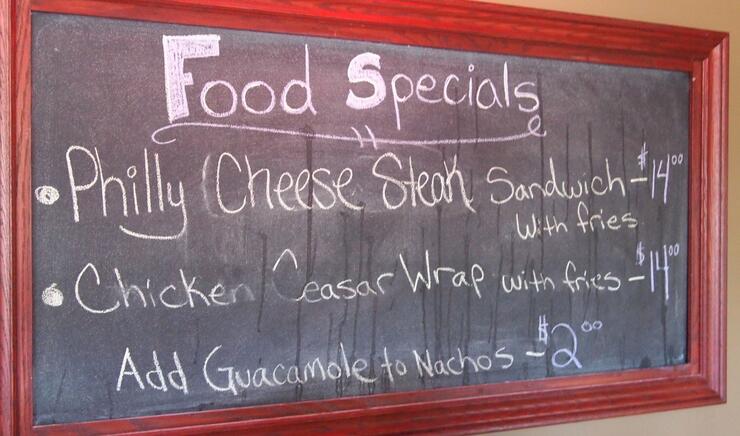 Food Specials
• Philly Cheese Steak Sandwich - $14.00
with fries
• Chicken Ceasar Wrap with fries - $14.00
Add Guacamole to Nachos - $2.00